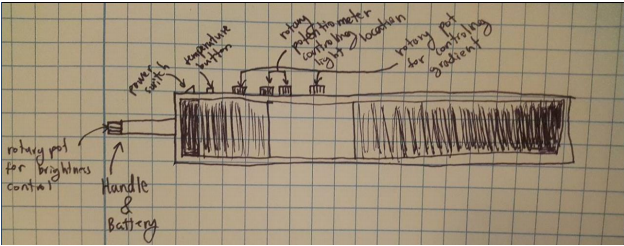 power
switch
temperature
button
rotary
potentiometer
controlling
light location
rotary pot
for controlling
gradient
rotary pot
for brightness
control
Handle
&
Battery